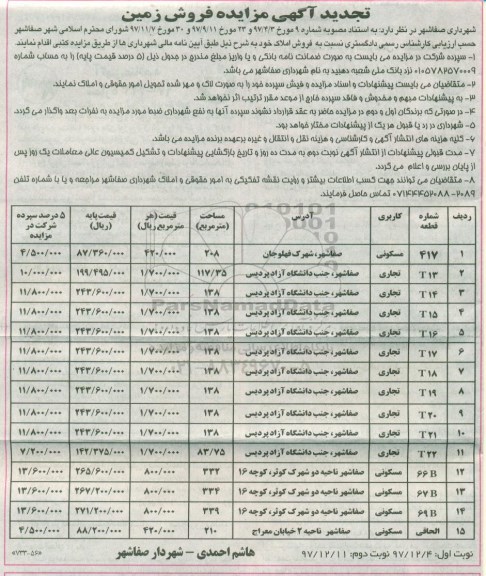 تجدید آگهی مزایده فروش زمین
شهرداری صفاشهر در نظر دارد: به استناد مصوبه شماره ۹ مورخ ۹۷/۲/۳ و ۲۳ مورخ ۹۷/۹/۱۱ و ۳۰ مورخ ۹۷/۱۱/۷ شورای محترم اسلامی شهر صفاشهر
حسب ارزیابی کارشناس رسمی دادگستری نسبت به فروش املاک خود به شرح ذیل طبق آیین نامه مالی شهرداری ها از طریق مزایده کتبی اقدام نمایند.
۱- سپرده شرکت در مزایده می بایست به صورت ضمانت نامه بانکی و یا واریز مبلغ مندرج در جدول ذیل (۵ درصد قیمت پایه) را به حساب شماره
۰۱۰۵۷۸۲۵۷۰۰۰۹ نزد بانک ملی شعبه دهبید به نام شهرداری صفاشهر می باشد.
۲- متقاضیان می بایست پیشنهادات و اسناد مزایده و فیش سپرده خود را به صورت لاک و مهر شده تحویل امور حقوقی و املاک نمایند.
۳- به پیشنهادات مبهم و مخدوش و فاقد سپرده خارج از موعد مقرر ترتیب اثر نخواهد شد.
۴- در صورتی که برندگان اول و دوم در مزایده حاضر به عقد قرارداد نشوند سپرده آنها به نفع شهرداری ضبط مورد مزایده به نفرات بعد واگذار می گردد.
۵- شهرداری در رد یا قبول هر یک از پیشنهادات مختار خواهد بود.
۶- کلیه هزینه های انتشار آگهی و کارشناسی و هزینه نقل و انتقال و غیره برعهده برنده مزایده می باشد.
۷- مدت قبولی پیشنهادات از انتشار آگهی نوبت دوم به مدت ده روز و تاریخ بازگشایی پیشنهادات و تشکیل کمیسیون عالی معاملات یک روز پس
از پایان بررسی و اعلام می گردد.
۸- متقاضیان می توانند جهت کسب اطلاعات بیشتر و رویت نقشه تفکیکی به امور حقوقی و املاک شهرداری صفاشهر مراجعه و یا با شماره تلفن
۰۷۱۴۴۴۵۲۰۸۸-۲۰۸۹ تماس حاصل فرمایند.
ردیف شماره قطعه کاربری آدرس مساحت (مترمربع) قیمت (هر مترمربع ریال) قیمت پایه (ریال) ۵ درصد سپرده شرکت در مزایده
۱ ۴۱۷ مسکونی صفاشهر، شهرک قهلوجان ۲۰۸ ۴۲۰/۰۰۰ ۸۷/۳۶۰/۰۰۰ ۴/۵۰۰/۰۰۰
۲ T۱۳ تجاری صفاشهر، جنب دانشگاه آزاد پردیس ۱۱۷/۳۵ ۱/۷۰۰/۰۰۰ ۱۹۹/۴۹۵/۰۰۰ ۱۰/۰۰۰/۰۰۰
۳ T۱۴ تجاری صفاشهر، جنب دانشگاه آزاد پردیس ۱۳۸ ۱/۷۰۰/۰۰۰ ۲۴۳/۶۰۰/۰۰۰ ۱۱/۸۰۰/۰۰۰
۴ T۱۵ تجاری صفاشهر، جنب دانشگاه آزاد پردیس ۱۳۸ ۱/۷۰۰/۰۰۰ ۲۴۳/۶۰۰/۰۰۰ ۱۱/۸۰۰/۰۰۰
۵ T۱۶ تجاری صفاشهر، جنب دانشگاه آزاد پردیس ۱۳۸ ۱/۷۰۰/۰۰۰ ۲۴۳/۶۰۰/۰۰۰ ۱۱/۸۰۰/۰۰۰
۶ T۱۷ تجاری صفاشهر، جنب دانشگاه آزاد پردیس ۱۳۸ ۱/۷۰۰/۰۰۰ ۲۴۳/۶۰۰/۰۰۰ ۱۱/۸۰۰/۰۰۰
۷ T۱۸ تجاری صفاشهر، جنب دانشگاه آزاد پردیس ۱۳۸ ۱/۷۰۰/۰۰۰ ۲۴۳/۶۰۰/۰۰۰ ۱۱/۸۰۰/۰۰۰
۸ T۱۹ تجاری صفاشهر، جنب دانشگاه آزاد پردیس ۱۳۸ ۱/۷۰۰/۰۰۰ ۲۴۳/۶۰۰/۰۰۰ ۱۱/۸۰۰/۰۰۰
۹ T۲۰ تجاری صفاشهر، جنب دانشگاه آزاد پردیس ۱۳۸ ۱/۷۰۰/۰۰۰ ۲۴۳/۶۰۰/۰۰۰ ۱۱/۸۰۰/۰۰۰
۱۰ T۲۱ تجاری صفاشهر، جنب دانشگاه آزاد پردیس ۱۳۸ ۱/۷۰۰/۰۰۰ ۲۴۳/۶۰۰/۰۰۰ ۱۱/۸۰۰/۰۰۰
۱۱ T۲۲ تجاری صفاشهر، جنب دانشگاه آزاد پردیس ۸۳/۷۵ ۱/۷۰۰/۰۰۰ ۱۴۲/۳۷۵/۰۰۰ ۷/۲۰۰/۰۰۰
۱۲ ۶۶ B مسکونی صفاشهر ناحیه دو شهرک کوثر، کوچه ۱۶ ۳۳۲ ۸۰۰/۰۰۰ ۲۶۵/۶۰۰/۰۰۰ ۱۳/۶۰۰/۰۰۰
۱۳ ۶۷ B مسکونی صفاشهر ناحیه دو شهرک کوثر، کوچه ۱۶ ۳۳۴ ۸۰۰/۰۰۰ ۲۶۷/۲۰۰/۰۰۰ ۱۳/۶۰۰/۰۰۰
۱۴ ۶۹ B مسکونی صفاشهر ناحیه دو شهرک کوثر، کوچه ۱۶ ۳۳۹ ۸۰۰/۰۰۰ ۲۷۱/۲۰۰/۰۰۰ ۱۳/۶۰۰/۰۰۰
۱۵ الحاقی مسکونی صفاشهر ناحیه ۲ خیابان معراج ۲۱۰ ۴۲۰/۰۰۰ ۸۸/۲۰۰/۰۰۰ ۴/۵۰۰/۰۰۰
نوبت اول: ۹۷/۱۲/۴ نوبت دوم: ۹۷/۱۲/۱۱ هاشم احمدی - شهردار صفاشهر